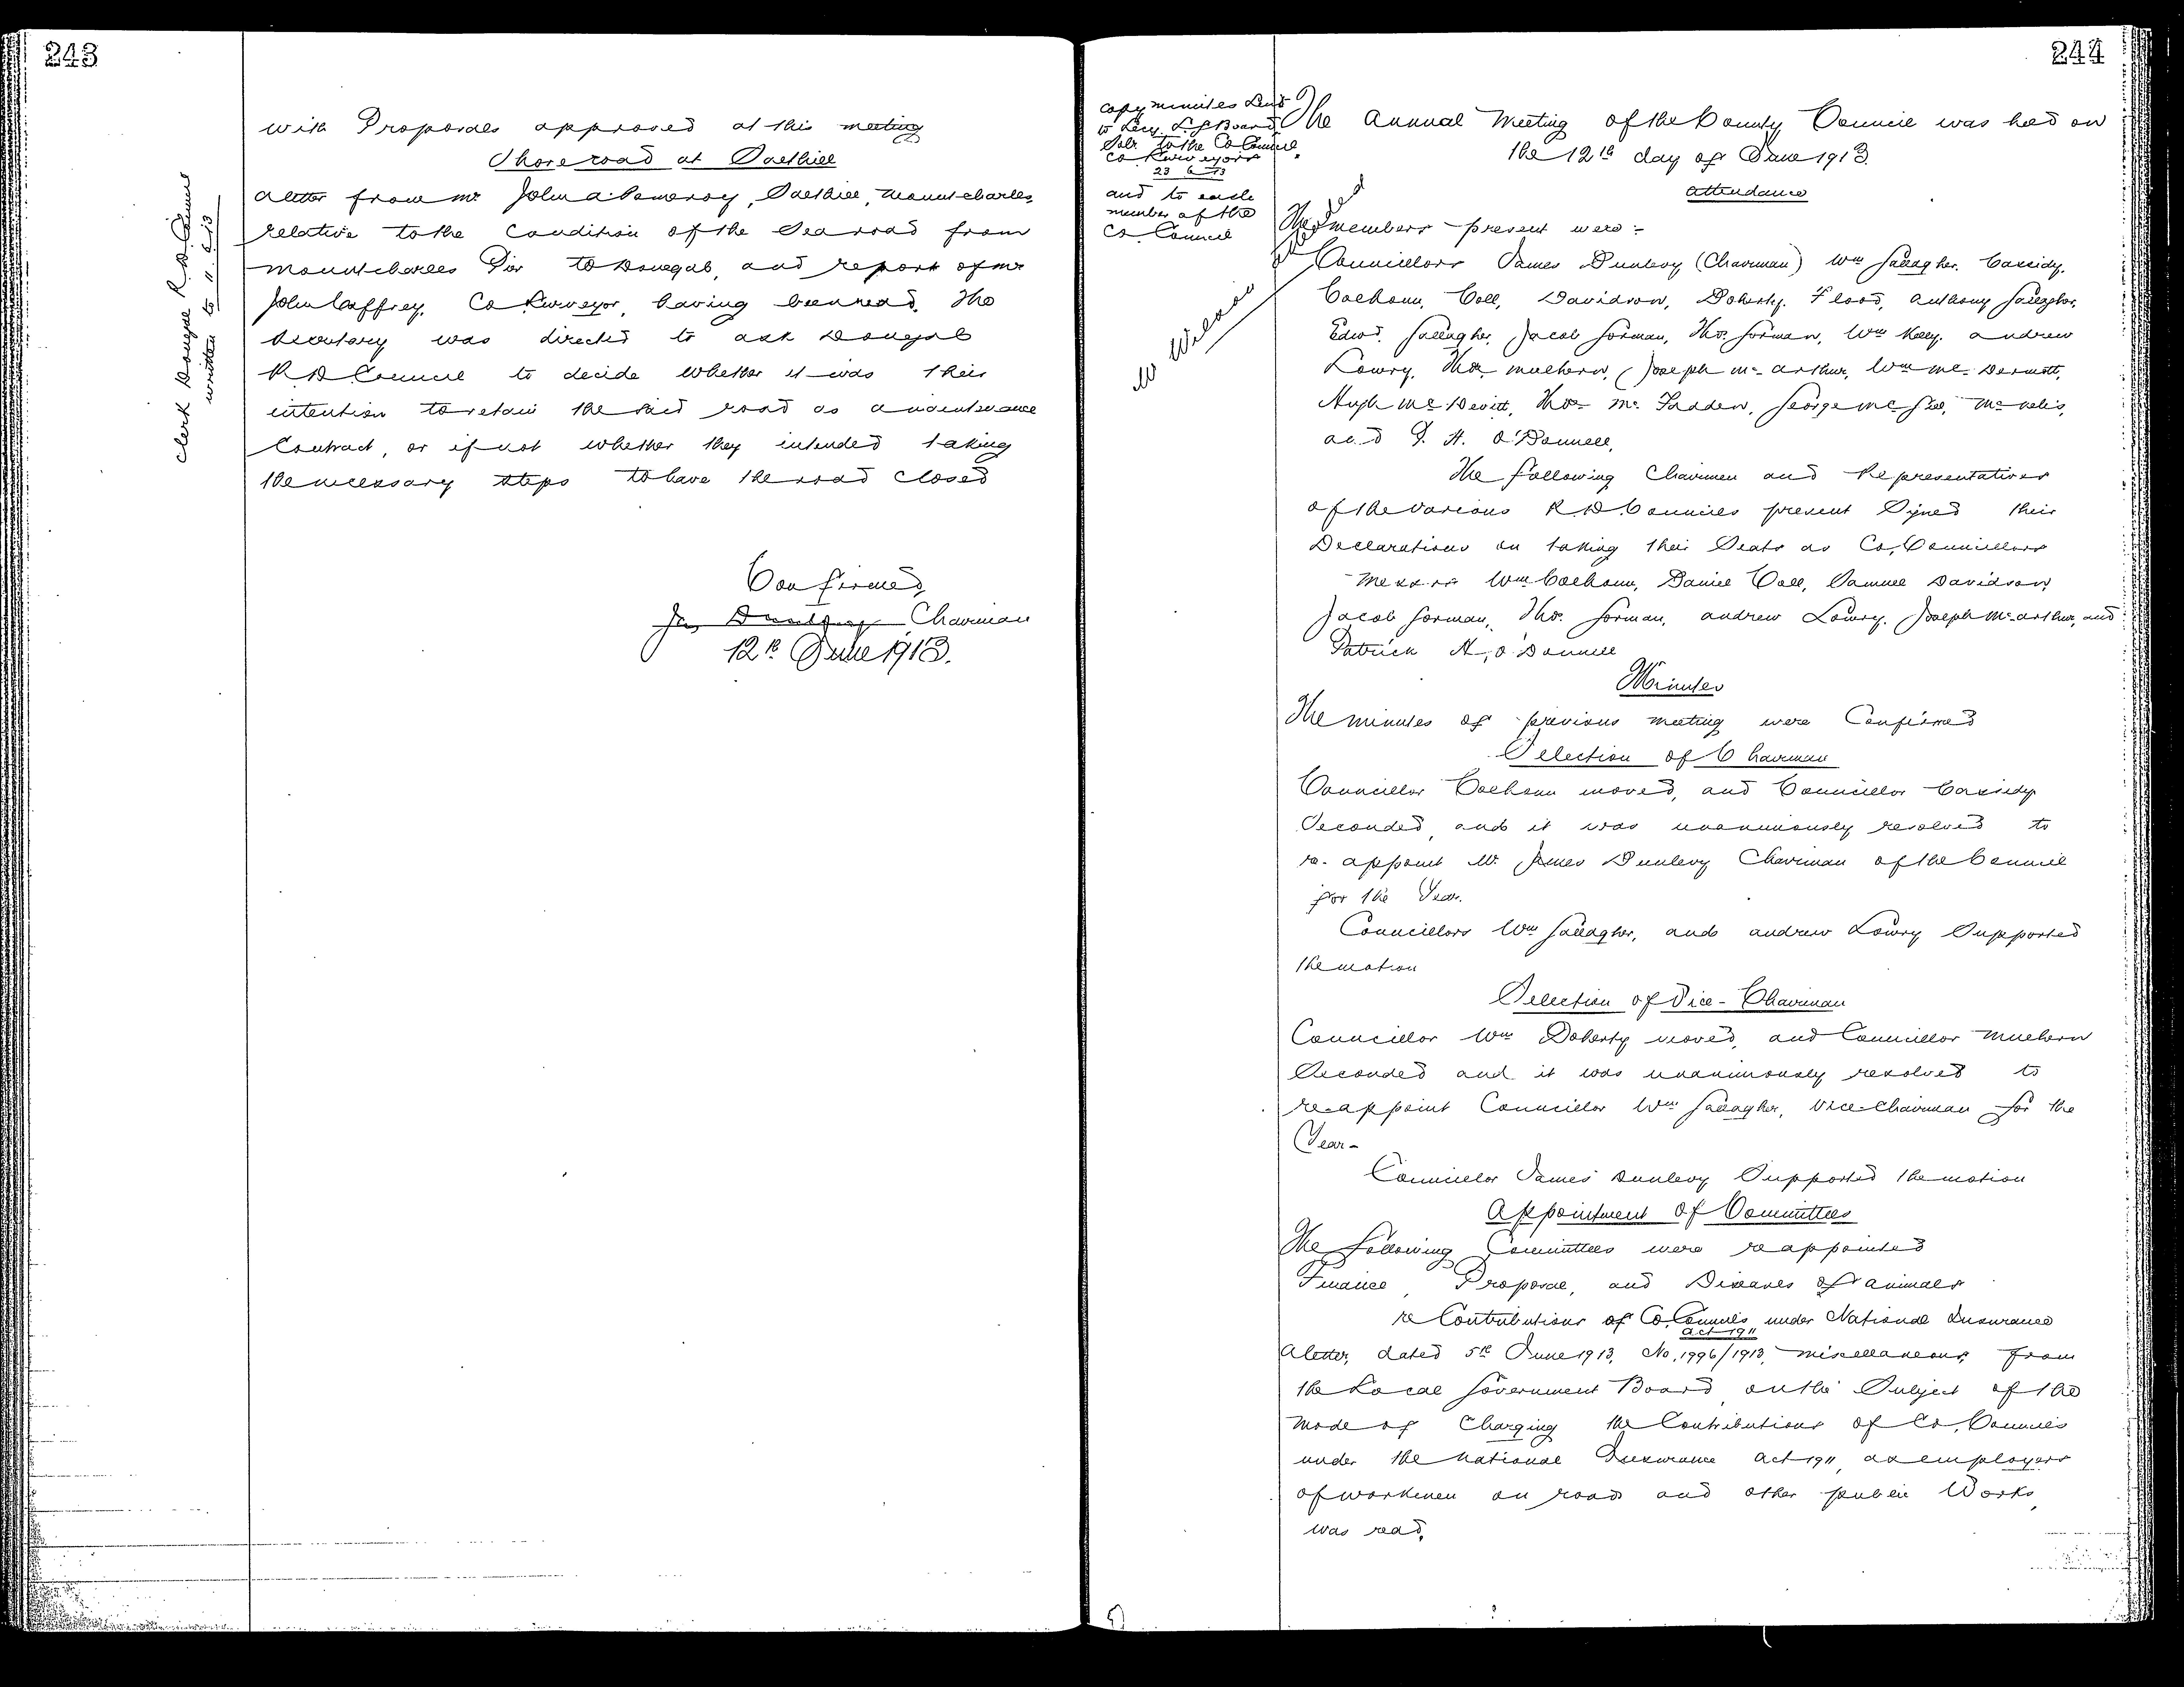 243
with Proposals approved at this meeting
Shore road at Salthill
Clerk Donegal R. D. Council
written to 11.6.13
A letter from Mr John A Pomeroy, Salthill, Mountcharles,
relative to the condition of the Sea road from
Mountcharles Pier to Donegal, and report of Mr
John Caffrey, Co Surveyor, having been read. The
Secretary was directed to ask Donegal
R D Council to decide whether it was their
intention to retain the said road as a maintenance
Contract, or if not whether they intended taking
the necessary steps to have the road closed
Confirmed,
Jas Dunlevy Chairman
12th June 1913.
244
Copy minutes sent
to Secy. L G Board
Solr. to the Co Council,
Co Surveyors
23 6 13
and to each
member of the
Co. Council
The Annual Meeting of the County Council was held on
the 12th day of June 1913.
Attendance
The members present were:-
Councillors James Dunlevy (Chairman) Wm Gallagher. Cassidy.
Colhoun, Coll, Davidson, Doherty. Flood, Anthony Gallagher,
Edwd. Gallagher, Jacob Gorman, Thos. Gorman, Wm Kelly. Andrew
Lowry, Thos Mulhern, Joseph McArthur, Wm McDermott,
Hugh McDevitt, Thos McFadden, George McGee, McNelis,
and P. A. O'Donnell,
The following Chairmen and Representatives
of the various R. D. Councils present signed their
Declarations on taking their Seats as Co, Councillors
Messrs Wm Colhoun, Daniel Coll, Samuel Davidson,
Jacob Gorman, Thos. Gorman, Andrew Lowry. Joseph McArthur, and
Patrick A, O'Donnell
Minutes
The minutes of previous meeting were Confirmed
Selection of Chairman
Councillor Colhoun moved, and Councillor Cassidy
Seconded, and it was unanimously resolved to
re-appoint Mr. James Dunlevy Chairman of the Council
for the Year.
Councillors Wm Gallagher, and Andrew Lowry Supported
the motion
Selection of Vice-Chairman
Councillor Wm Doherty moved, and Councillor Mulhern
Seconded and it was unanimously resolved to
re-appoint Councillor Wm Gallagher, Vice-Chairman for the
Year-
Councillor James Dunlevy Supported the motion
Appointment of Committees
The following Committees were reappointed
Finance, Proposal, and Diseases of Animals
re Contributions of Co, Councils under National Insurance
Act 1911
A letter, dated 5th June 1913, No, 1996/1913, Miscellaneous, from
the Local Government Board on the Subject of the
mode of Charging the Contributions of Co, Councils
under the National Insurance Act 1911, as employers
of workmen on roads and other public Works,
was read,